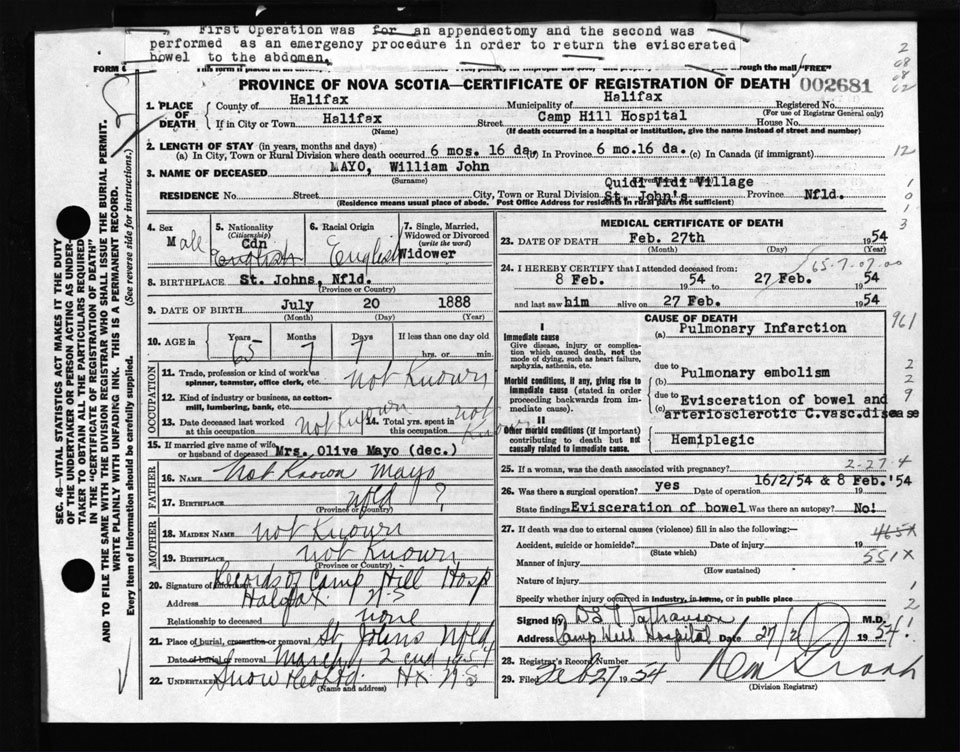 First Operation was for an appendectomy and the second was
performed as an emergency procedure in order to return the eviscerated
bowel to the abdomen.
FORM
through the mail "FREE"
PROVINCE OF NOVA SCOTIA—CERTIFICATE OF REGISTRATION OF DEATH 002681
1. PLACE OF DEATH
County of Halifax Municipality of Halifax Registered No.
(For use of Registrar General only)
If in City or Town Halifax Street Camp Hill Hospital House No.
(Name) (If death occurred in a hospital or institution, give the name instead of street and number)
2. LENGTH OF STAY (in years, months and days)
(a) In City, Town or Rural Division where death occurred 6 mos. 16 da. In Province 6 mo.16 da. (c) In Canada (if immigrant) 12
3. NAME OF DECEASED MAYO, William John
(Surname)
Quidi Vidi Village
RESIDENCE No. Street City, Town or Rural Division St. John's Province Nfld.
(Residence means usual place of abode. Post Office Address for residents in rural parts not sufficient)
4. Sex Male
5. Nationality (Citizenship) Cdn English
6. Racial Origin English
7. Single, Married, Widowed or Divorced (write the word) Widower
8. BIRTHPLACE St. Johns, Nfld.
(Province or Country)
9. DATE OF BIRTH July 20 1888
(Month) (Day) (Year)
10. AGE in Years Months Days If less than one day old
65 7 7 hrs. or min.
OCCUPATION
11. Trade, profession or kind of work as spinner, teamster, office clerk, etc. Not Known
12. Kind of industry or business, as cotton-mill, lumbering, bank, etc. Not Known
13. Date deceased last worked at this occupation Not Known
14. Total yrs. spent in this occupation Not Known
15. If married give name of wife or husband of deceased Mrs. Olive Mayo (dec.)
FATHER
16. Name Not Known Mayo
17. Birthplace Nfld ?
(Province or Country)
MOTHER
18. Maiden Name Not Known
19. Birthplace Not Known
(Province or Country)
20. Signature of Informant Records of Camp Hill Hosp
Address Halifax N.S
Relationship to deceased none
21. Place of burial, cremation or removal St Johns Nfld
Date of burial or removal March 2 cnd 1954
22. UNDERTAKER Snow Hx. N.S
(Name and address)
MEDICAL CERTIFICATE OF DEATH
23. DATE OF DEATH Feb. 27th 1954
(Month) (Day) (Year)
65-7-07.00
24. I HEREBY CERTIFY that I attended deceased from:
8 Feb. 1954 to 27 Feb. 1954
and last saw him alive on 27 Feb. 1954
CAUSE OF DEATH 961
I
Immediate cause
Give disease, injury or complication which caused death, not the mode of dying, such as heart failure, asphyxia, asthenia, etc.
(a) Pulmonary Infarction
due to Pulmonary embolism
Morbid conditions, if any, giving rise to immediate cause (stated in order proceeding backwards from immediate cause).
(b)
due to Evisceration of bowel and
(c) arteriosclerotic C.vasc.disease
II
Other morbid conditions (if important) contributing to death but not causally related to immediate cause.
Hemiplegic
25. If a woman, was the death associated with pregnancy? 2-27-4
26. Was there a surgical operation? yes Date of operation 16/2/54 & 8 Feb.'54
State findings Evisceration of bowel Was there an autopsy? No!
27. If death was due to external causes (violence) fill in also the following:—
Accident, suicide or homicide? Date of injury 19 465X
(State which)
Manner of injury 551X
(How sustained)
Nature of injury
Specify whether injury occurred in industry, in home, or in public place
Signed by M.D.
Address Camp Hill Hospital Date 27/2 1954!
28. Registrar's Record Number
29. Filed Feb 27 1954
(Division Registrar)
SEC. 46—VITAL STATISTICS ACT MAKES IT THE DUTY
OF THE UNDERTAKER OR PERSON ACTING AS UNDERTAKER TO OBTAIN ALL THE PARTICULARS REQUIRED
IN THE "CERTIFICATE OF REGISTRATION OF DEATH"
AND TO FILE THE SAME WITH THE DIVISION REGISTRAR WHO SHALL ISSUE THE BURIAL PERMIT.
WRITE PLAINLY WITH UNFADING INK. THIS IS A PERMANENT RECORD.
Every item of information should be carefully supplied. (See reverse side for instructions.)